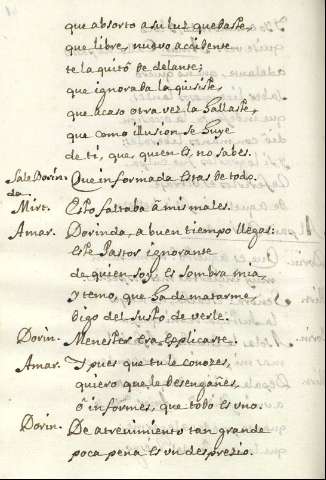 que absorto a su luz quedaste,
que libre, nuevo accidente
te la quitò de delante;
que ignoraba la quisiste,
que acaso otra vez la hallaste,
que como illusion se huye
de ti, que, quien es, no sabes.
Sale Dorin- Que informada estas de todo.
da.
Mirt. Esto faltaba à mis males.
Amar. Dorinda, a buen tiempo llegas:
este Pastor ignorante
de quien soy, es sombra mia,
y temo, que ha de matarme,
digo del susto de verle.
Dorin. Menester era explicarte.
Amar. Y pues que tu le conozes,
quiero que le desengañes,
ò informes, que todo es uno.
Dorin. De atrevimiento tan grande
poca pena es un desprezio.